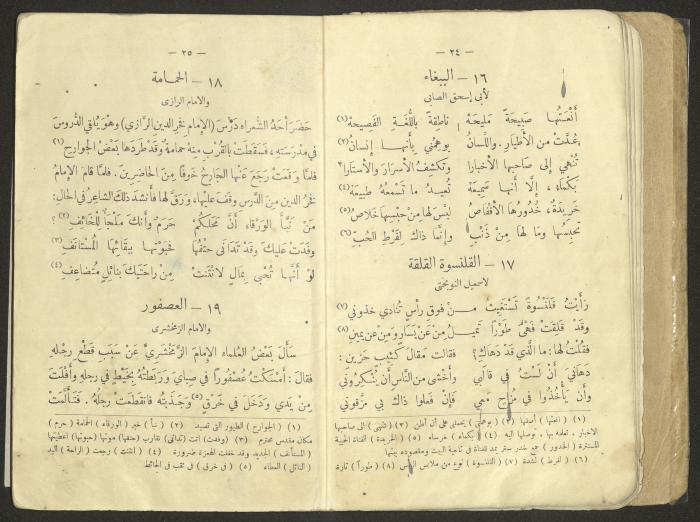 — ٢٤ —
١٦ — الببغاء
لأبي إسحق الصابي
أَنْعَتُها صَبيحَةً مَليحَهْ ناطِقَةً باللُّغَةِ الفَصيحهْ (١)
عُدَّتْ من الأَطْيارِ. واللِّسانُ يوهِمُني بأَنَّها إِنسانُ (٢)
تُنْهي إِلى صاحبِها الأخبارا وتكشِفُ الأسرارَ والأَستارا ٣
بَكْماءُ، إِلَّا أَنَّها سَميعَهْ تُعيدُ ما تَسْمَعُهُ طبيعَهْ (٤)
خَريدَةٌ، خُدُورُها الأَقفاصُ لَيْسَ لها مِنْ حَبْسِها خَلاصُ (٥)
نحبِسُها وما لها مِنْ ذَنْبِ وإِنَّما ذاك لِفَرْطِ الحُبِّ (٦)
١٧ — القلنسوة القلقة
لاسمعيل النوبختي
رَأَيْتُ قَلَنْسُوَةً تَسْتَغيثُ مِنْ فوقِ رأْسٍ تُنادي خذوني (٧)
وقد قَلِقَتْ فَهْيَ طَوْراً تَميلُ مِنْ عَنْ يَسارٍ ومِنْ عن يمينِ (٨)
فقُلْتُ لها: ما الَّذي قد دَهاكِ؟ فقالت مَقالَ كَئيبٍ حَزينِ:
دَهانيَ أَنْ لَسْتُ في قالَبي وأَخْشى منَ النَّاسِ أَنْ يُنْكِروني
وأَنْ يَأْخُذُوا في مُزاحٍ مَعي فَإِنْ فعلوا ذاك بي مزَّقوني
(١) (انعتها) أصفها (٢) (يوهمني) يحملني على أن أظن (٣) (تنهي) إلى صاحبها
الاخبار. تعلمه بها. توصلها اليه (٤) (بكماء) خرساء (٥) (الخريدة) الفتاة الحيية
المستترة (الخدور) جمع خدر ستر يمد للفتاة في ناحية البيت ومقصوده بيتها
(٦) (لفرط) لشدة (٧) (القلنسوة) نوع من ملابس الرأس (٨) (طوراً) تارة
— ٢٥ —
١٨ — الحمامة
والامام الرازي
حَضَرَ أَحَدُ الشُّعراءِ دَرْسَ (الإِمامِ فخرِ الدين الرَّازي) وهوَ يُلقي الدُّروسَ
في مدرَسَتِهِ، فَسَقَطَتْ بالقُرْبِ مِنهُ حمامةٌ وقد طَرَدَها بَعْضُ الجوارِحِ (١)
فلمَّا وقَعَتْ رَجَعَ عَنْها الجارِحُ خَوفاً مِنَ الحاضِرينَ. فلمَّا قامَ الإِمامُ
فخرُ الدينِ مِنَ الدَّرسِ وقفَ عليها، ورَقَّ لها فأَنشدَ ذلكَ الشاعِرُ في الحالِ:
مَنْ نَبَّأَ الوَرْقاءَ أَنَّ مَحَلَّكُمْ حَرَمٌ وأَنكَ مَلْجَأٌ لِلْخائِفِ (٢)؟
وفدَتْ عليكَ وقَدْ تَدانَى حَتْفُها فَحَبَوْتَها ببقائِها المُسْتَأْنَفِ (٣)
لوْ أَنَّها تُحْبى بمالٍ لانْثَنتْ مِنْ راحَتَيكَ بنائِلٍ مُتضاعِفِ (٤)
١٩ — العصفور
والامام الزمخشري
سأَلَ بَعضُ العُلماءِ الإِمامَ الزَّمَخْشَريَّ عَنْ سَبَبِ قَطْعِ رِجْلِهِ
فقالَ: أَمْسَكْتُ عُصْفُوراً في صِبايَ ورَبَطْتُهُ بِخَيْطٍ في رِجلِهِ وأَفْلَتَ
مِنْ يَدي ودَخَلَ في خَرْقٍ (٥) وجَذَبْتُهُ فانقطَعَتْ رِجلُهُ. فَتَأَلَّمَتْ
(١) (الجوارح) الطيور التي تصيد (٢) (نبأ) خبر (الورقاء) الحمامة (حرم)
مكان مقدس محترم (٣) (وفدت) أتت (تدانى) تقارب (حتفها) موتها (حبوتها) اعطيتها
(المستأنف) الجديد وقد خففت الهمزة ضرورة (٤) (انثنت) رجعت (الراحة) اليد
(النائل) العطاء (٥) (في خرق) في ثقب في الحائط